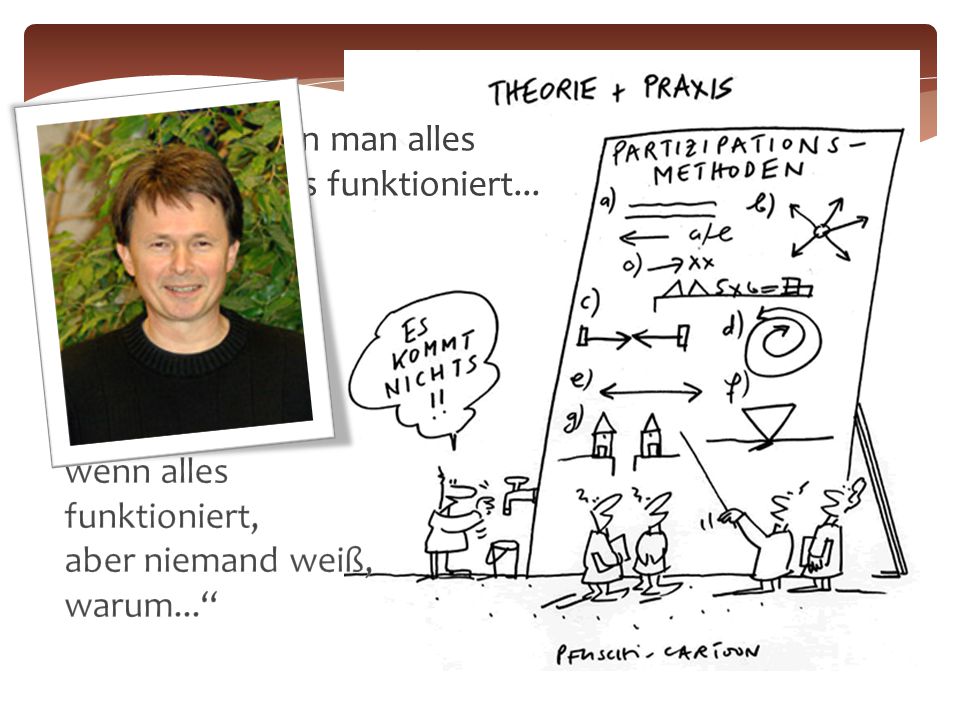 n man alles
s funktioniert...
wenn alles
funktioniert,
aber niemand weiß,
warum...“
THEORIE + PRAXIS
PARTIZIPATIONS-
METHODEN
a)
b)
a/e
o) → xx
5x6=
c)
d)
e)
f)
g)
ES
KOMMT
NICHTS
!!
PFUSCHI-CARTOON